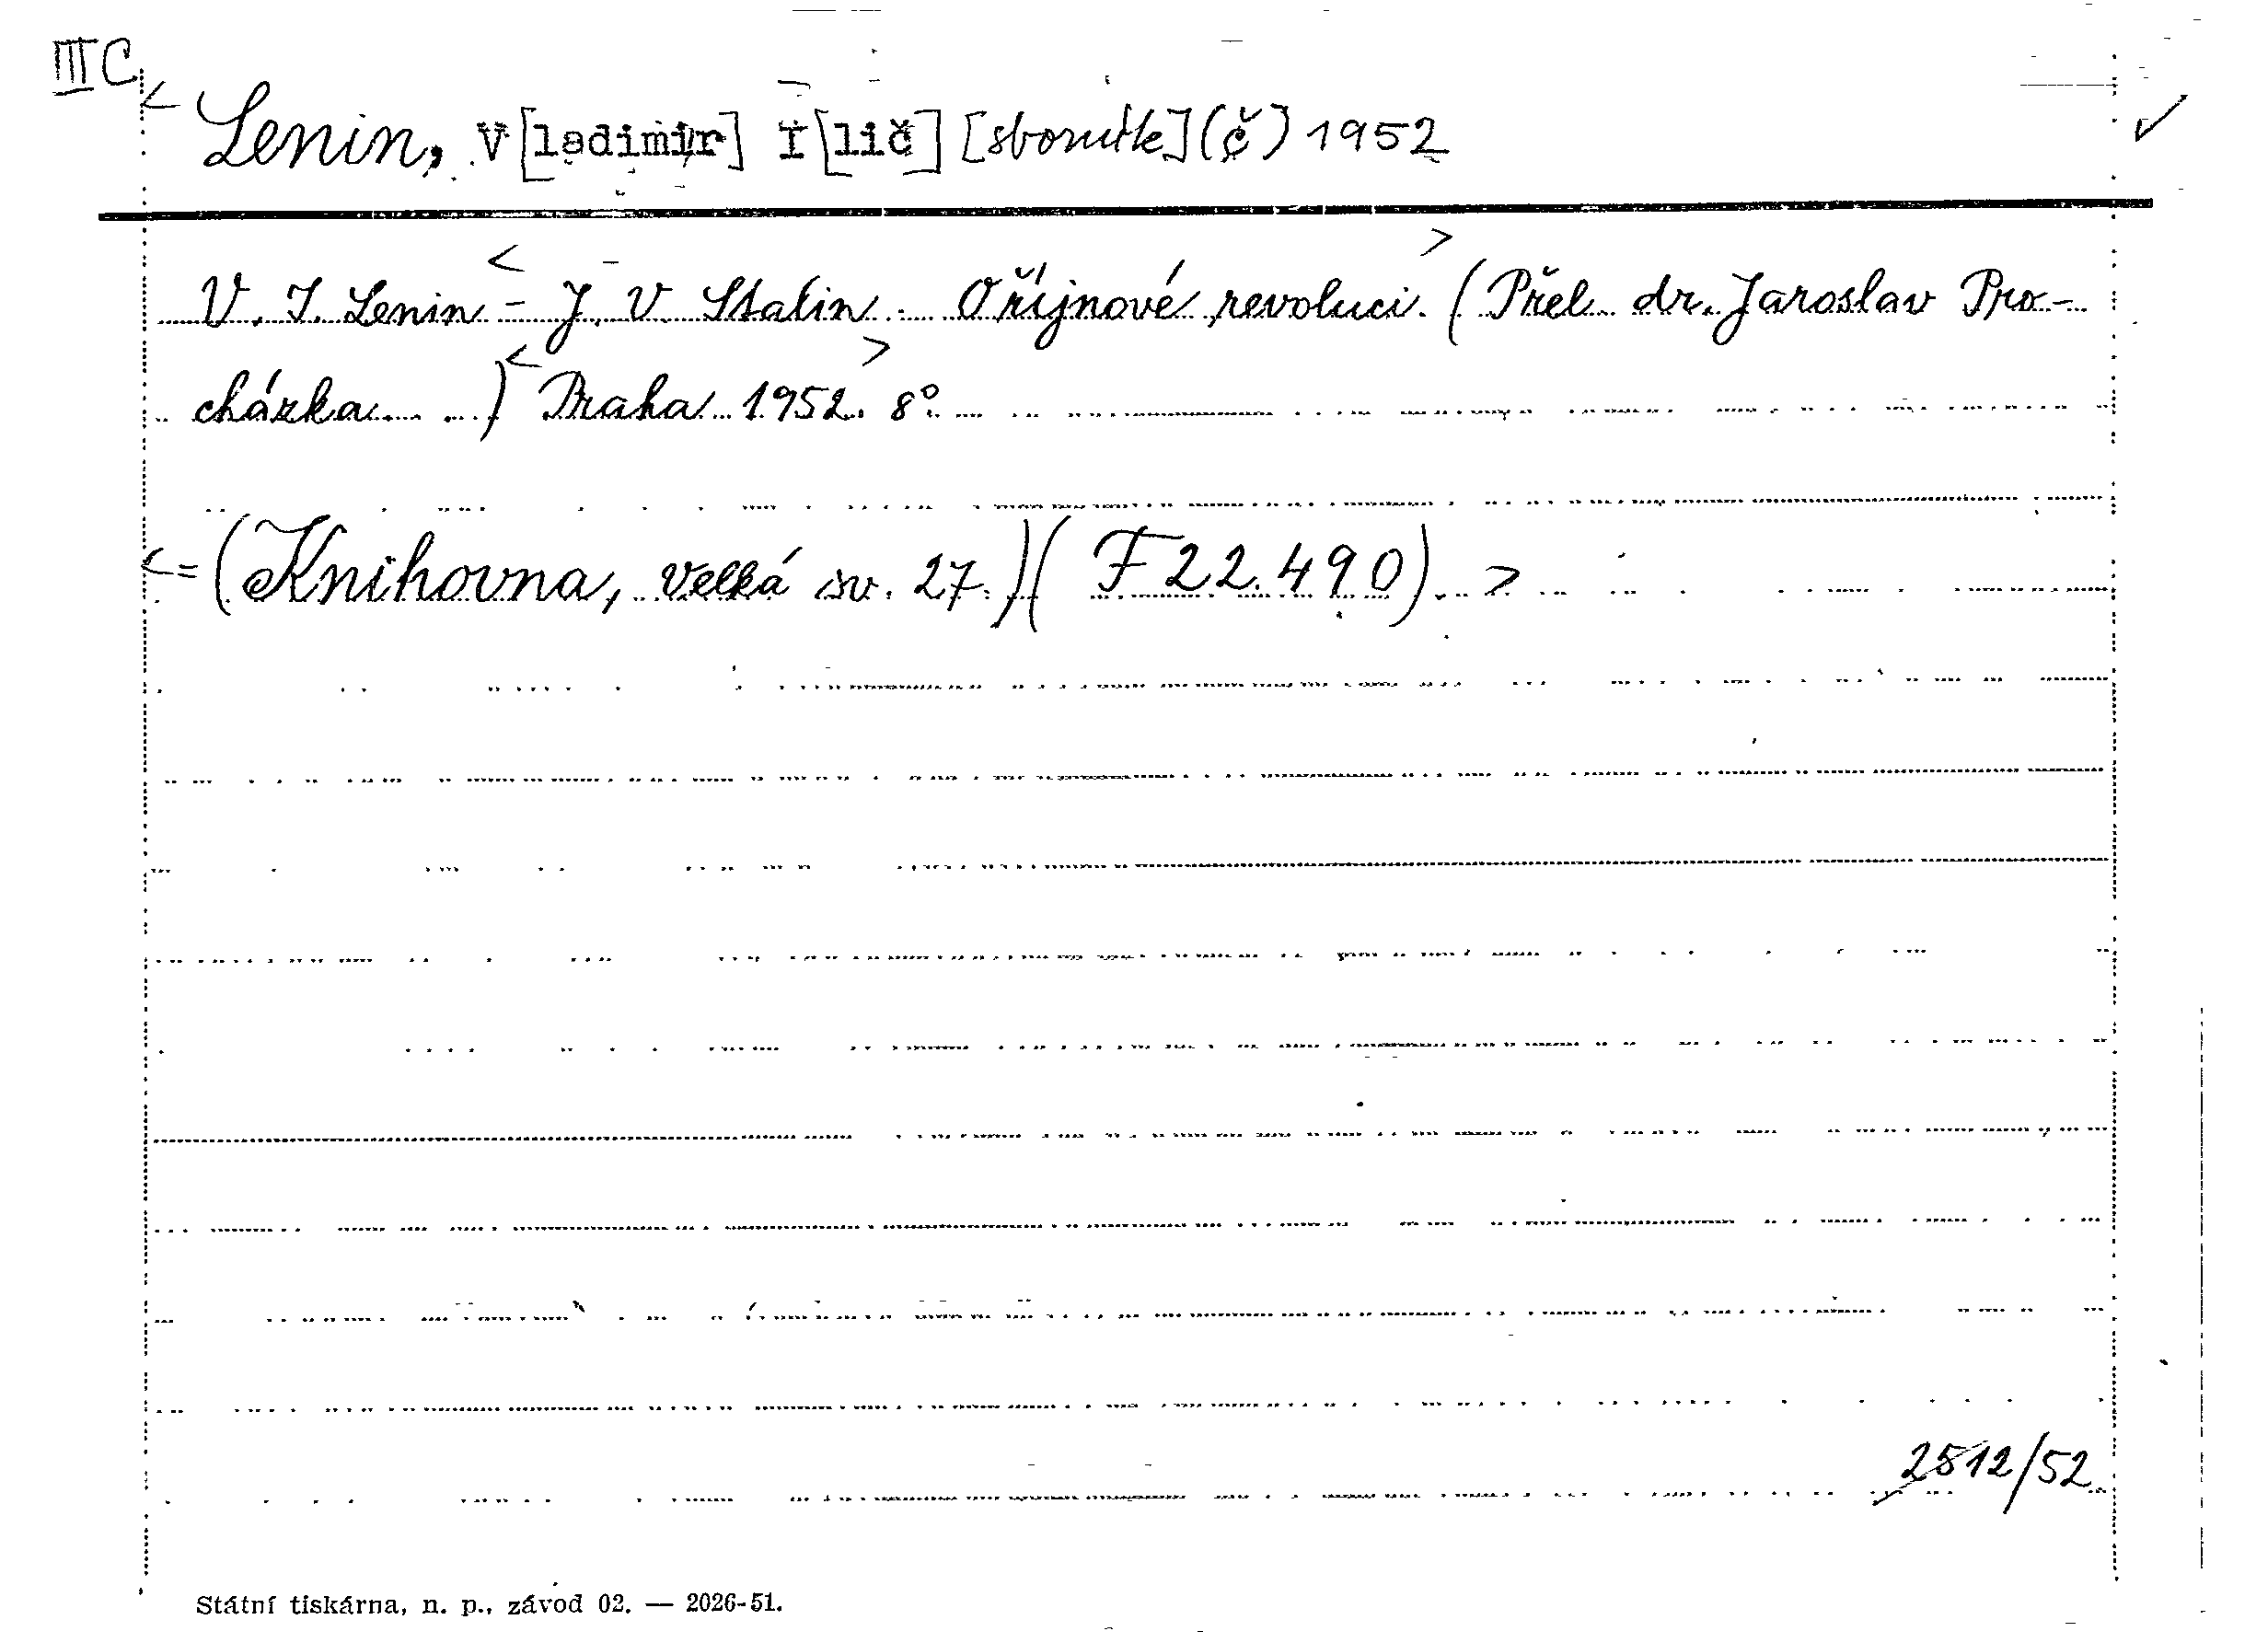 III C
< Lenin, V[ladimir] I[lič] [sborník] (č) 1952 ✓
V. I. Lenin < - J. V. Stalin. O říjnové revoluci. > (Přel. dr. Jaroslav Pro-
cházka. .) < Praha 1952. > 8°.
< = (Knihovna, Velká sv. 27.) (F 22.490). >
2512/52
Státní tiskárna, n. p., závod 02. — 2026-51.